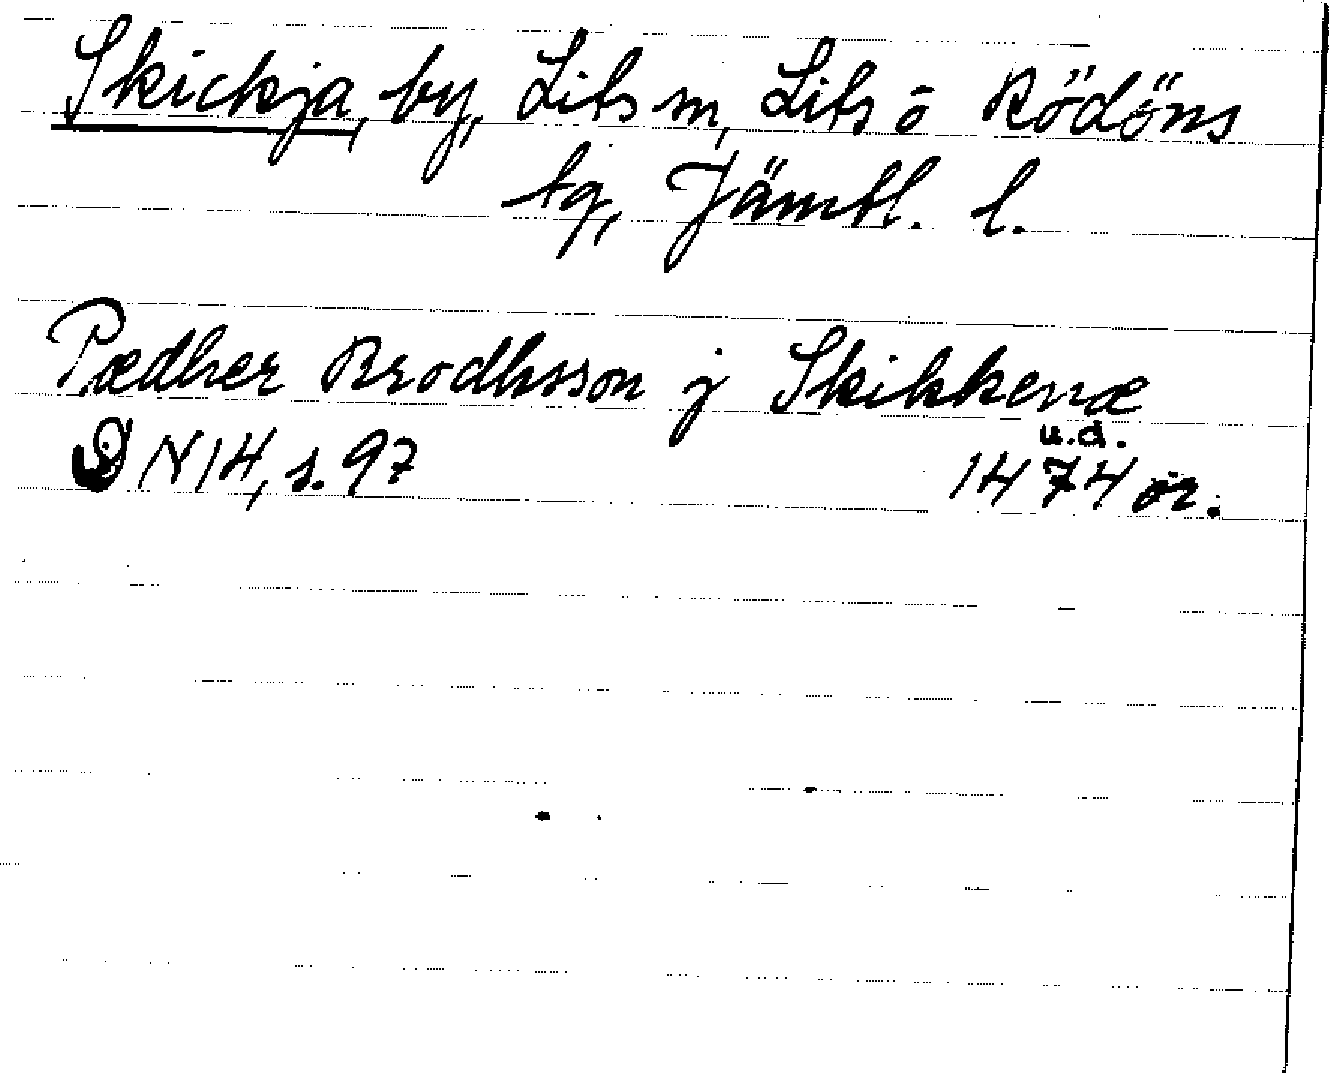 Skickja, by, Lits sn, Lits o Rödöns
tg, Jämtl. l.
Pædher Brodhsson j Skikkenæ
u.d.
DN 14, s. 97 1474 or.